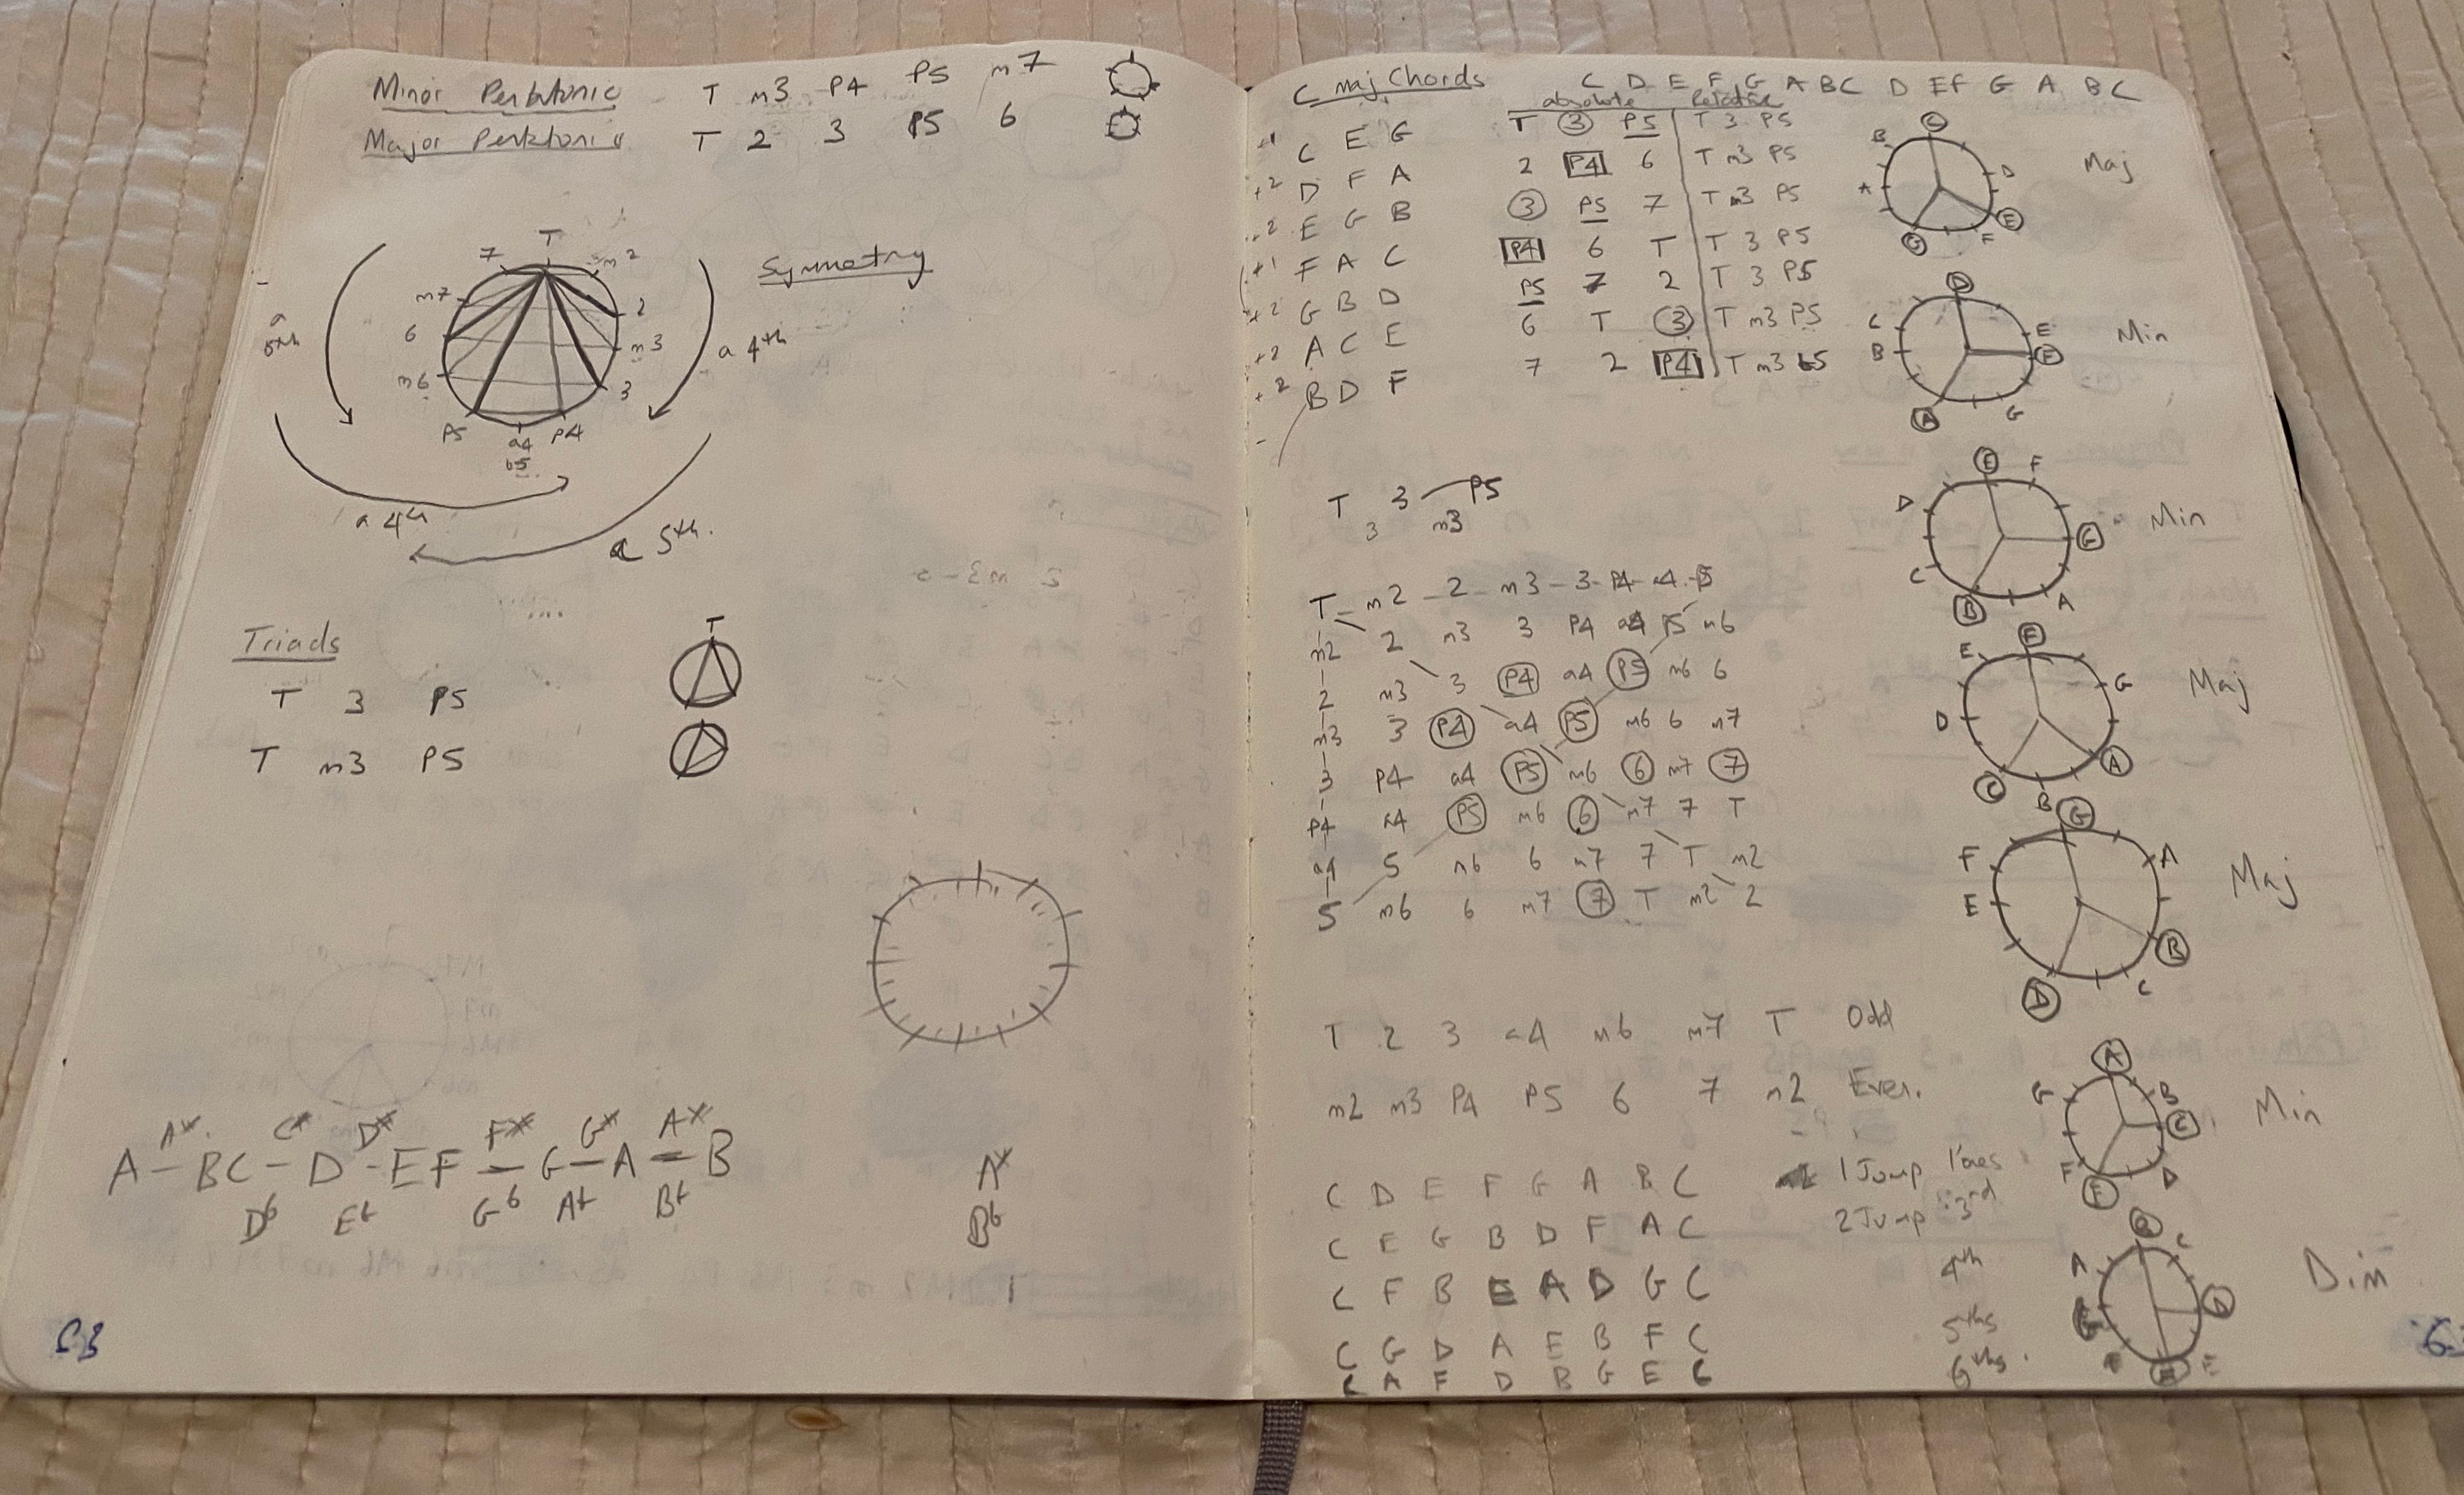 Minor Pentatonic T m3 P4 P5 m7
Major Pentatonic T 2 3 P5 6
Symmetry
T
7 m2
m7 2
6 m3
m6 3
P5 a4 P4
b5
a 5th
a 4th
a 4th
a 5th.
Triads
T 3 P5
T m3 P5
T
A - B C - D - E F - G - A - B
D♭ E♭ G♭ A♭ B♭
B♭
C maj Chords
C D E F G A B C D E F G A B C
absolute relative
+1 C E G T 3 P5 T 3 P5
+2 D F A 2 P4 6 T m3 P5
+2 E G B 3 P5 7 T m3 P5
+1 F A C P4 6 T T 3 P5
+2 G B D P5 7 2 T 3 P5
+2 A C E 6 T 3 T m3 P5
+2 B D F 7 2 P4 T m3 b5
T 3 P5
3 m3
T - m2 - 2 - m3 - 3 - P4 - a4 - 5
m2 2 m3 3 P4 a4 P5 m6
2 m3 3 P4 a4 P5 m6 6
m3 3 P4 a4 P5 m6 6 m7
3 P4 a4 P5 m6 6 m7 7
P4 a4 P5 m6 6 m7 7 T
a4 5 m6 6 m7 7 T m2
5 m6 6 m7 7 T m2 2
T 2 3 a4 m6 m7 T Odd
m2 m3 P4 P5 6 7 m2 Even.
C D E F G A B C 1 Jump
C E G B D F A C 2 Jump 3rd
C F B E A D G C 4th
C G D A E B F C 5ths
C A F D B G E C 6ths.
C
B D
A E
G F
Maj
D
C E
B F
A G
Min
E F
D G
C A
B
Min
F
E G
D A
C B
Maj
G
F A
E B
D C
Maj
A
G B
C
F D
E
Min
C
A D
E
Dim